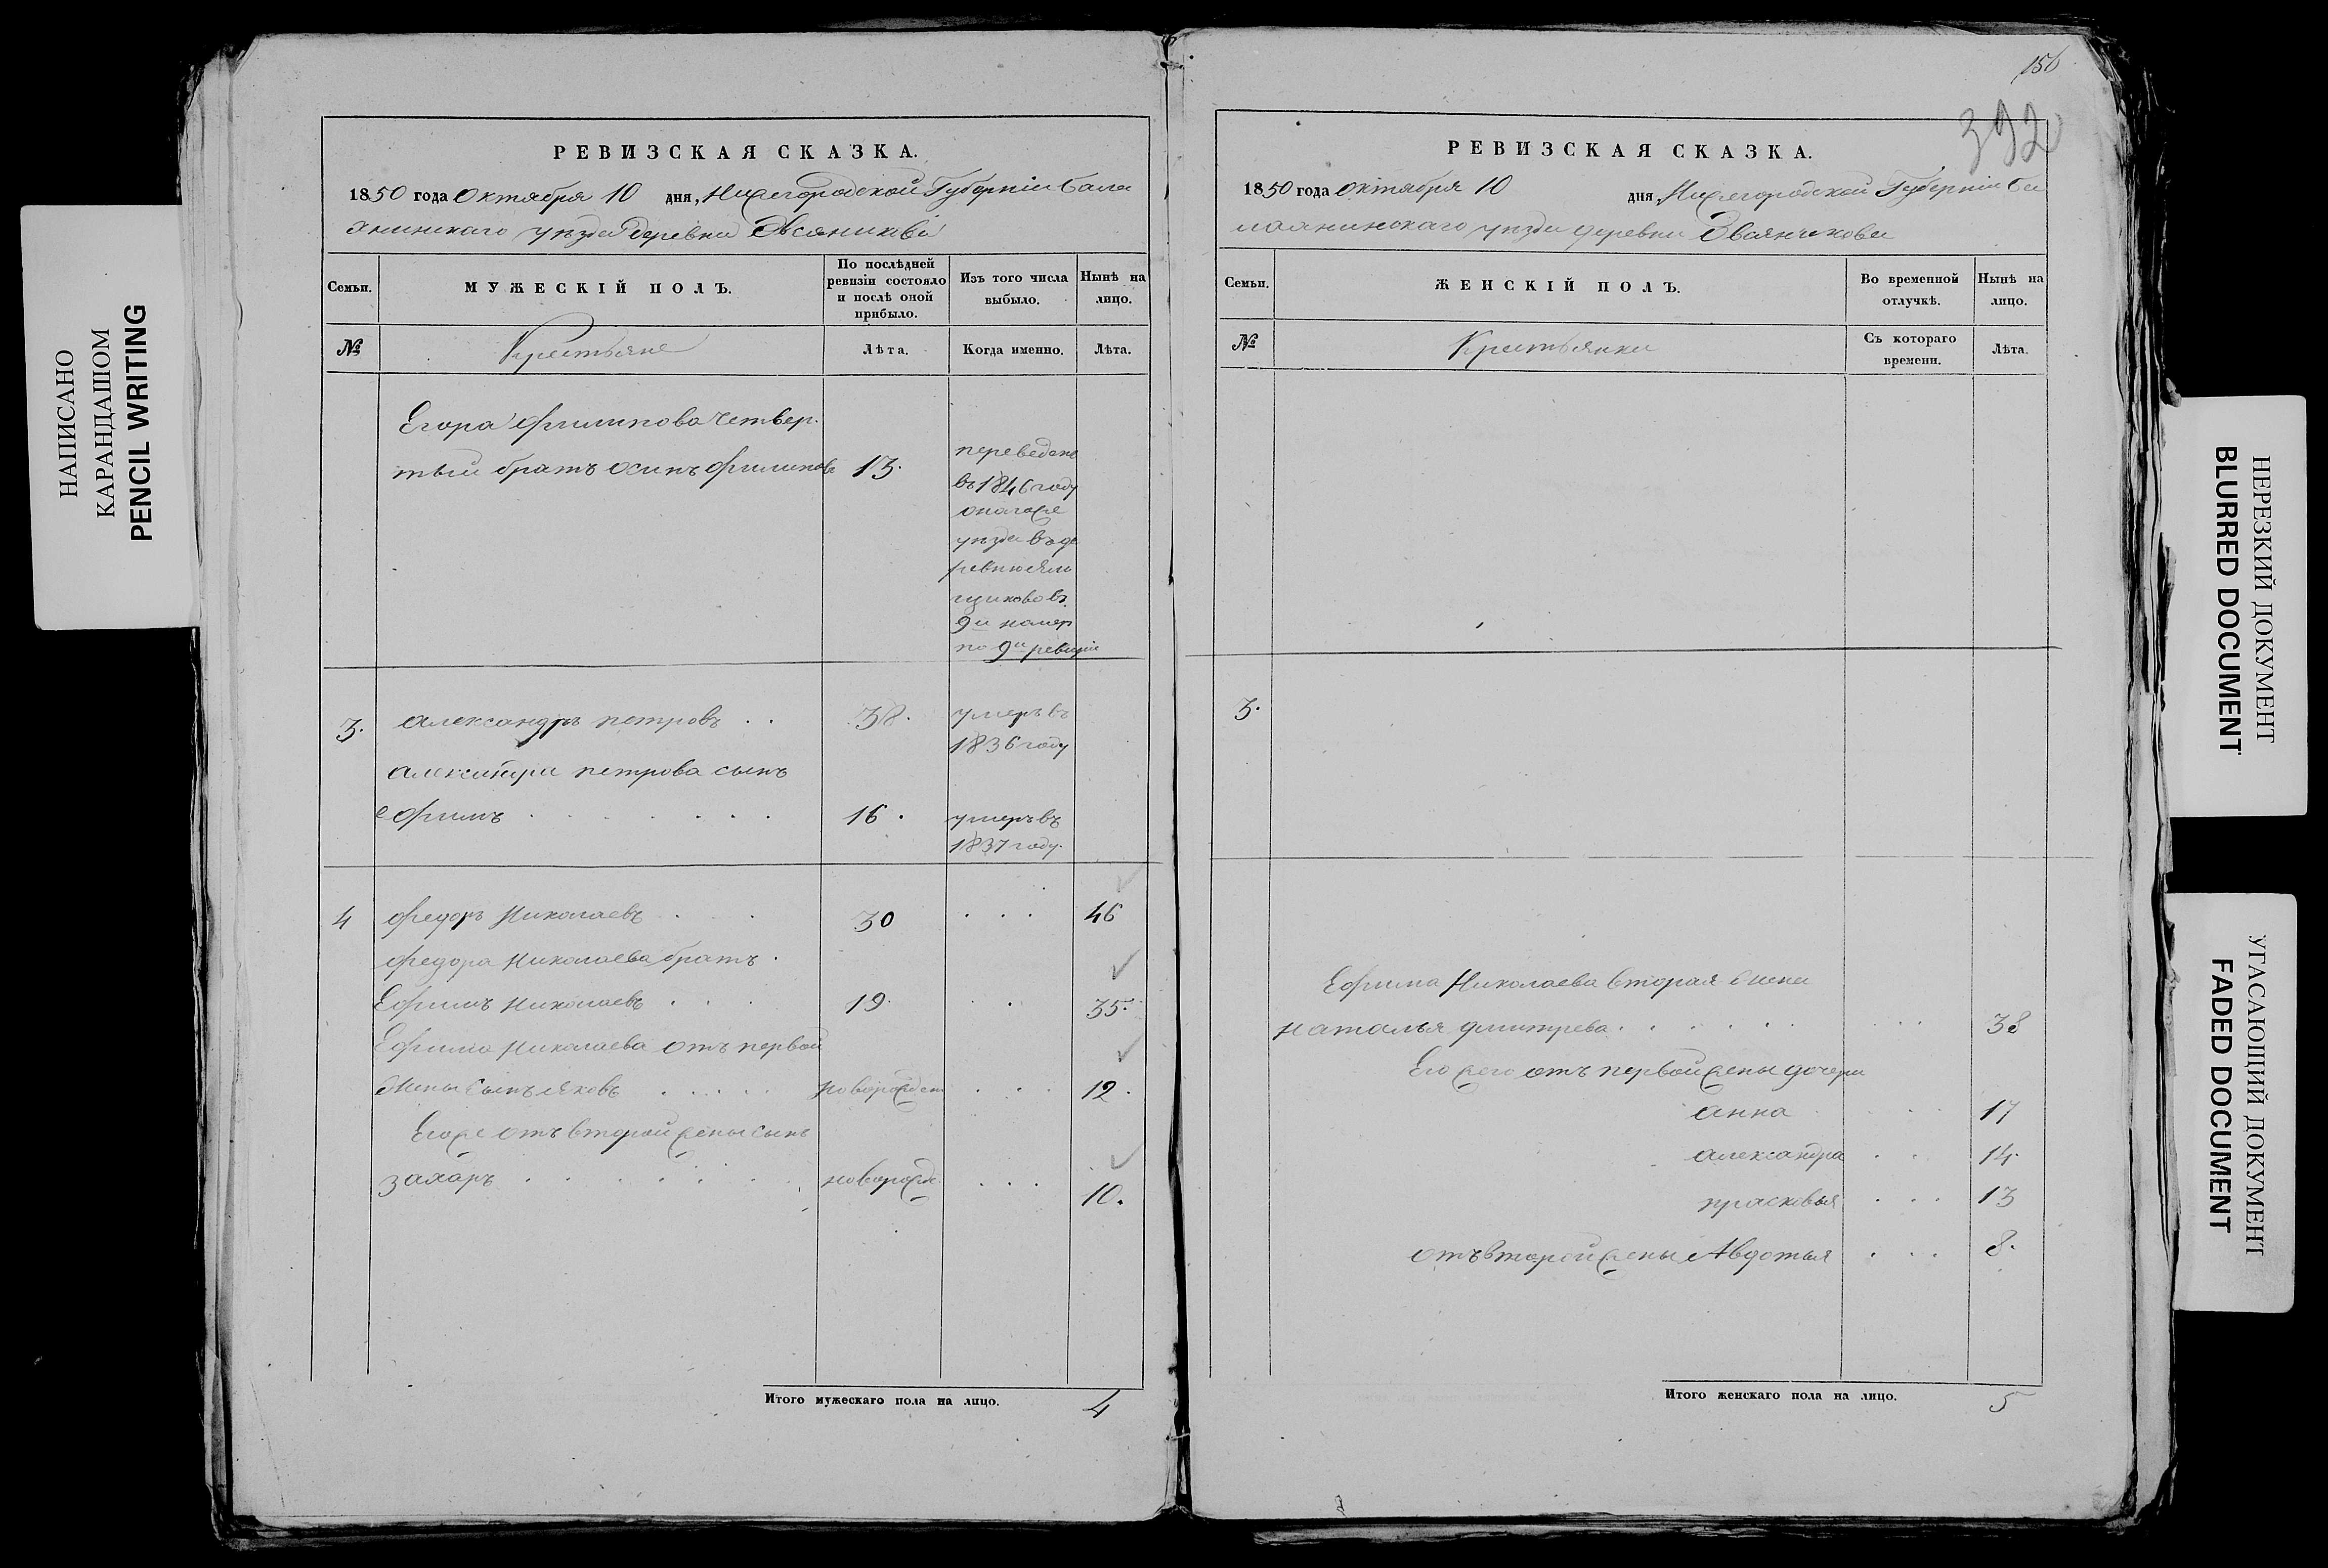 НАПИСАНО
КАРАНДАШОМ
PENCIL WRITING
РЕВИЗСКАЯ СКАЗКА.
1850 года Октября 10 дня, Нижегородской Губерніи Бала
хнинскаго уезда деревни
Семьи.
МУЖЕСКІЙ ПОЛЪ.
По послѣдней
ревизіи состояло
и послѣ оной
прибыло.
Изъ того числа
выбыло.
Нынѣ на
лицо.
№
Крестьяне
Лѣта.
Когда именно.
Лѣта.
Егора Филипова четвер-
тый братъ осипъ Филиповъ 13.
переведенъ
въ 1846 году
онагоже
уезда въ де
ревню
9й номер
по 9й ревизіи
3. александръ петровъ . . 38. умеръ въ
1836 году
александра петрова сынъ
ефимъ 16. умеръ въ
1837 году.
4 федоръ Николаевъ 30 46
федора Николаева братъ.
Ефимъ Николаевъ 19. 35.
Ефима Николаева отъ первой
жены сынъ яковъ новорожден 12.
Егоже отъ второй жены сынъ
захаръ новорожд. 10.
Итого мужескаго пола на лицо. 4
156
392
РЕВИЗСКАЯ СКАЗКА.
1850 года октября 10 дня, Нижегородской Губерніи Ба
лахнинскаго уезда деревни
Семьи.
ЖЕНСКІЙ ПОЛЪ.
Во временной
отлучкѣ.
Нынѣ на
лицо.
№
Крестьянки
Съ котораго
времени.
Лѣта.
3.
Ефима Николаева вторая жена
наталья дмитрева 38
Его жего отъ первой жены дочери
анна 17
александра 14.
прасковья 13
отъ второй жены Авдотья 8.
Итого женскаго пола на лицо. 5
НЕРЕЗКИЙ ДОКУМЕНТ
BLURRED DOCUMENT
УГАСАЮЩИЙ ДОКУМЕНТ
FADED DOCUMENT